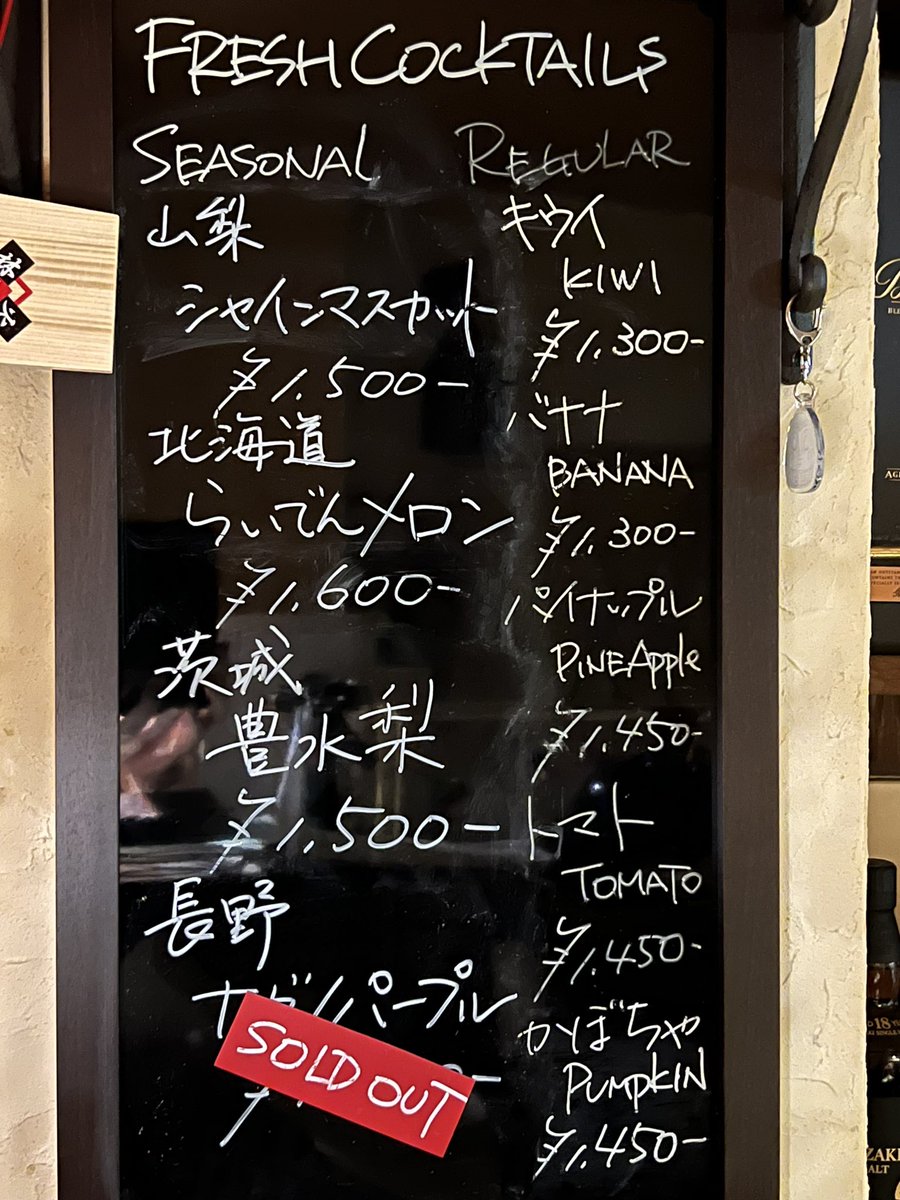 FRESH COCKTAILS
SEASONAL
山梨
シャインマスカット
¥1,500-
北海道
らいでんメロン
¥1,600-
茨城
豊水梨
¥1,500-
長野
ナガノパープル
SOLD OUT
REGULAR
キウイ
KIWI
¥1,300-
バナナ
BANANA
¥1,300-
パイナップル
PINEApple
¥1,450-
トマト
TOMATO
¥1,450-
かぼちゃ
PUMPKIN
¥1,450-
18